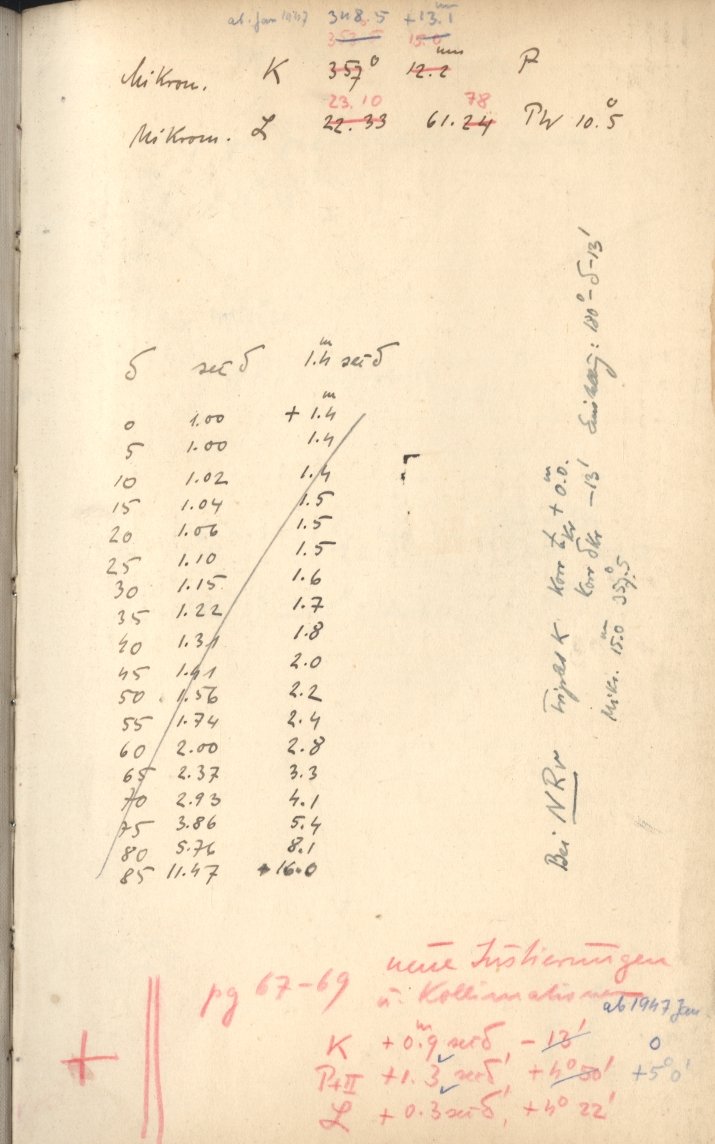 ab. Jan 1947 348.5 +13.1 m
353.5 15.0
Mikrom. K 357° 12.2 mm P
23.10 78
Mikrom. L 22.33 61.24 Pw 10.5°
δ sec δ 1.4 m sec δ
0 1.00 + 1.4 m
5 1.00 1.4
10 1.02 1.4
15 1.04 1.5
20 1.06 1.5
25 1.10 1.5
30 1.15 1.6
35 1.22 1.7
40 1.31 1.8
45 1.41 2.0
50 1.56 2.2
55 1.74 2.4
60 2.00 2.8
65 2.37 3.3
70 2.93 4.1
75 3.86 5.4
80 5.76 8.1
85 11.47 +16.0
Bei NRW Triplet K Korr t Kr + 0.0 m
Korr δ Kr -13' : 180° - δ - 13'
Mikr. 15.0 m 357.5°
pg 67-69 neue Justierungen
u. Kollimationen
ab 1947 Jan.
K +0.9 m sec δ, -13' 0
P+II +1.3 sec δ, +4° 50' +5° 0'
L +0.3 sec δ, +4° 22'